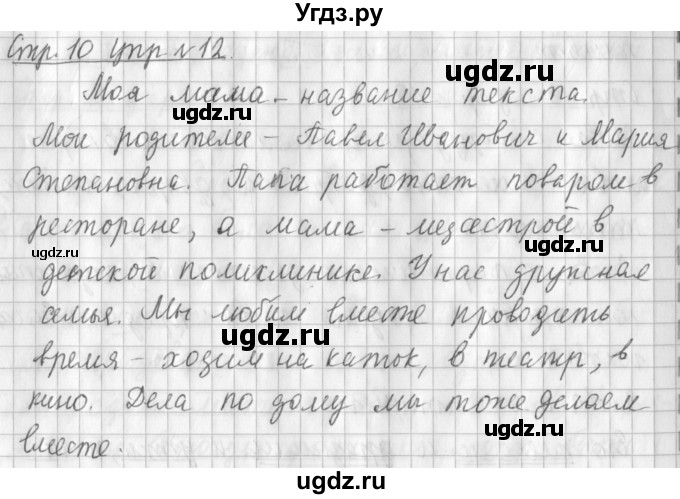 Угдз.ру
Стр. 10 упр №12.
Моя мама - название текста.
Мои родители - Павел Иванович и Мария
Степановна. Папа работает поваром в
ресторане, а мама - медсестрой в
детской поликлинике. У нас дружная
семья. Мы любим вместе проводить
время - ходим на каток, в театр, в
кино. Дела по дому мы тоже делаем
вместе.
ugdz.ru
ugdz.ru
ugdz.ru
ugdz.ru
ugdz.ru
ugdz.ru
ugdz.ru
ugdz.ru